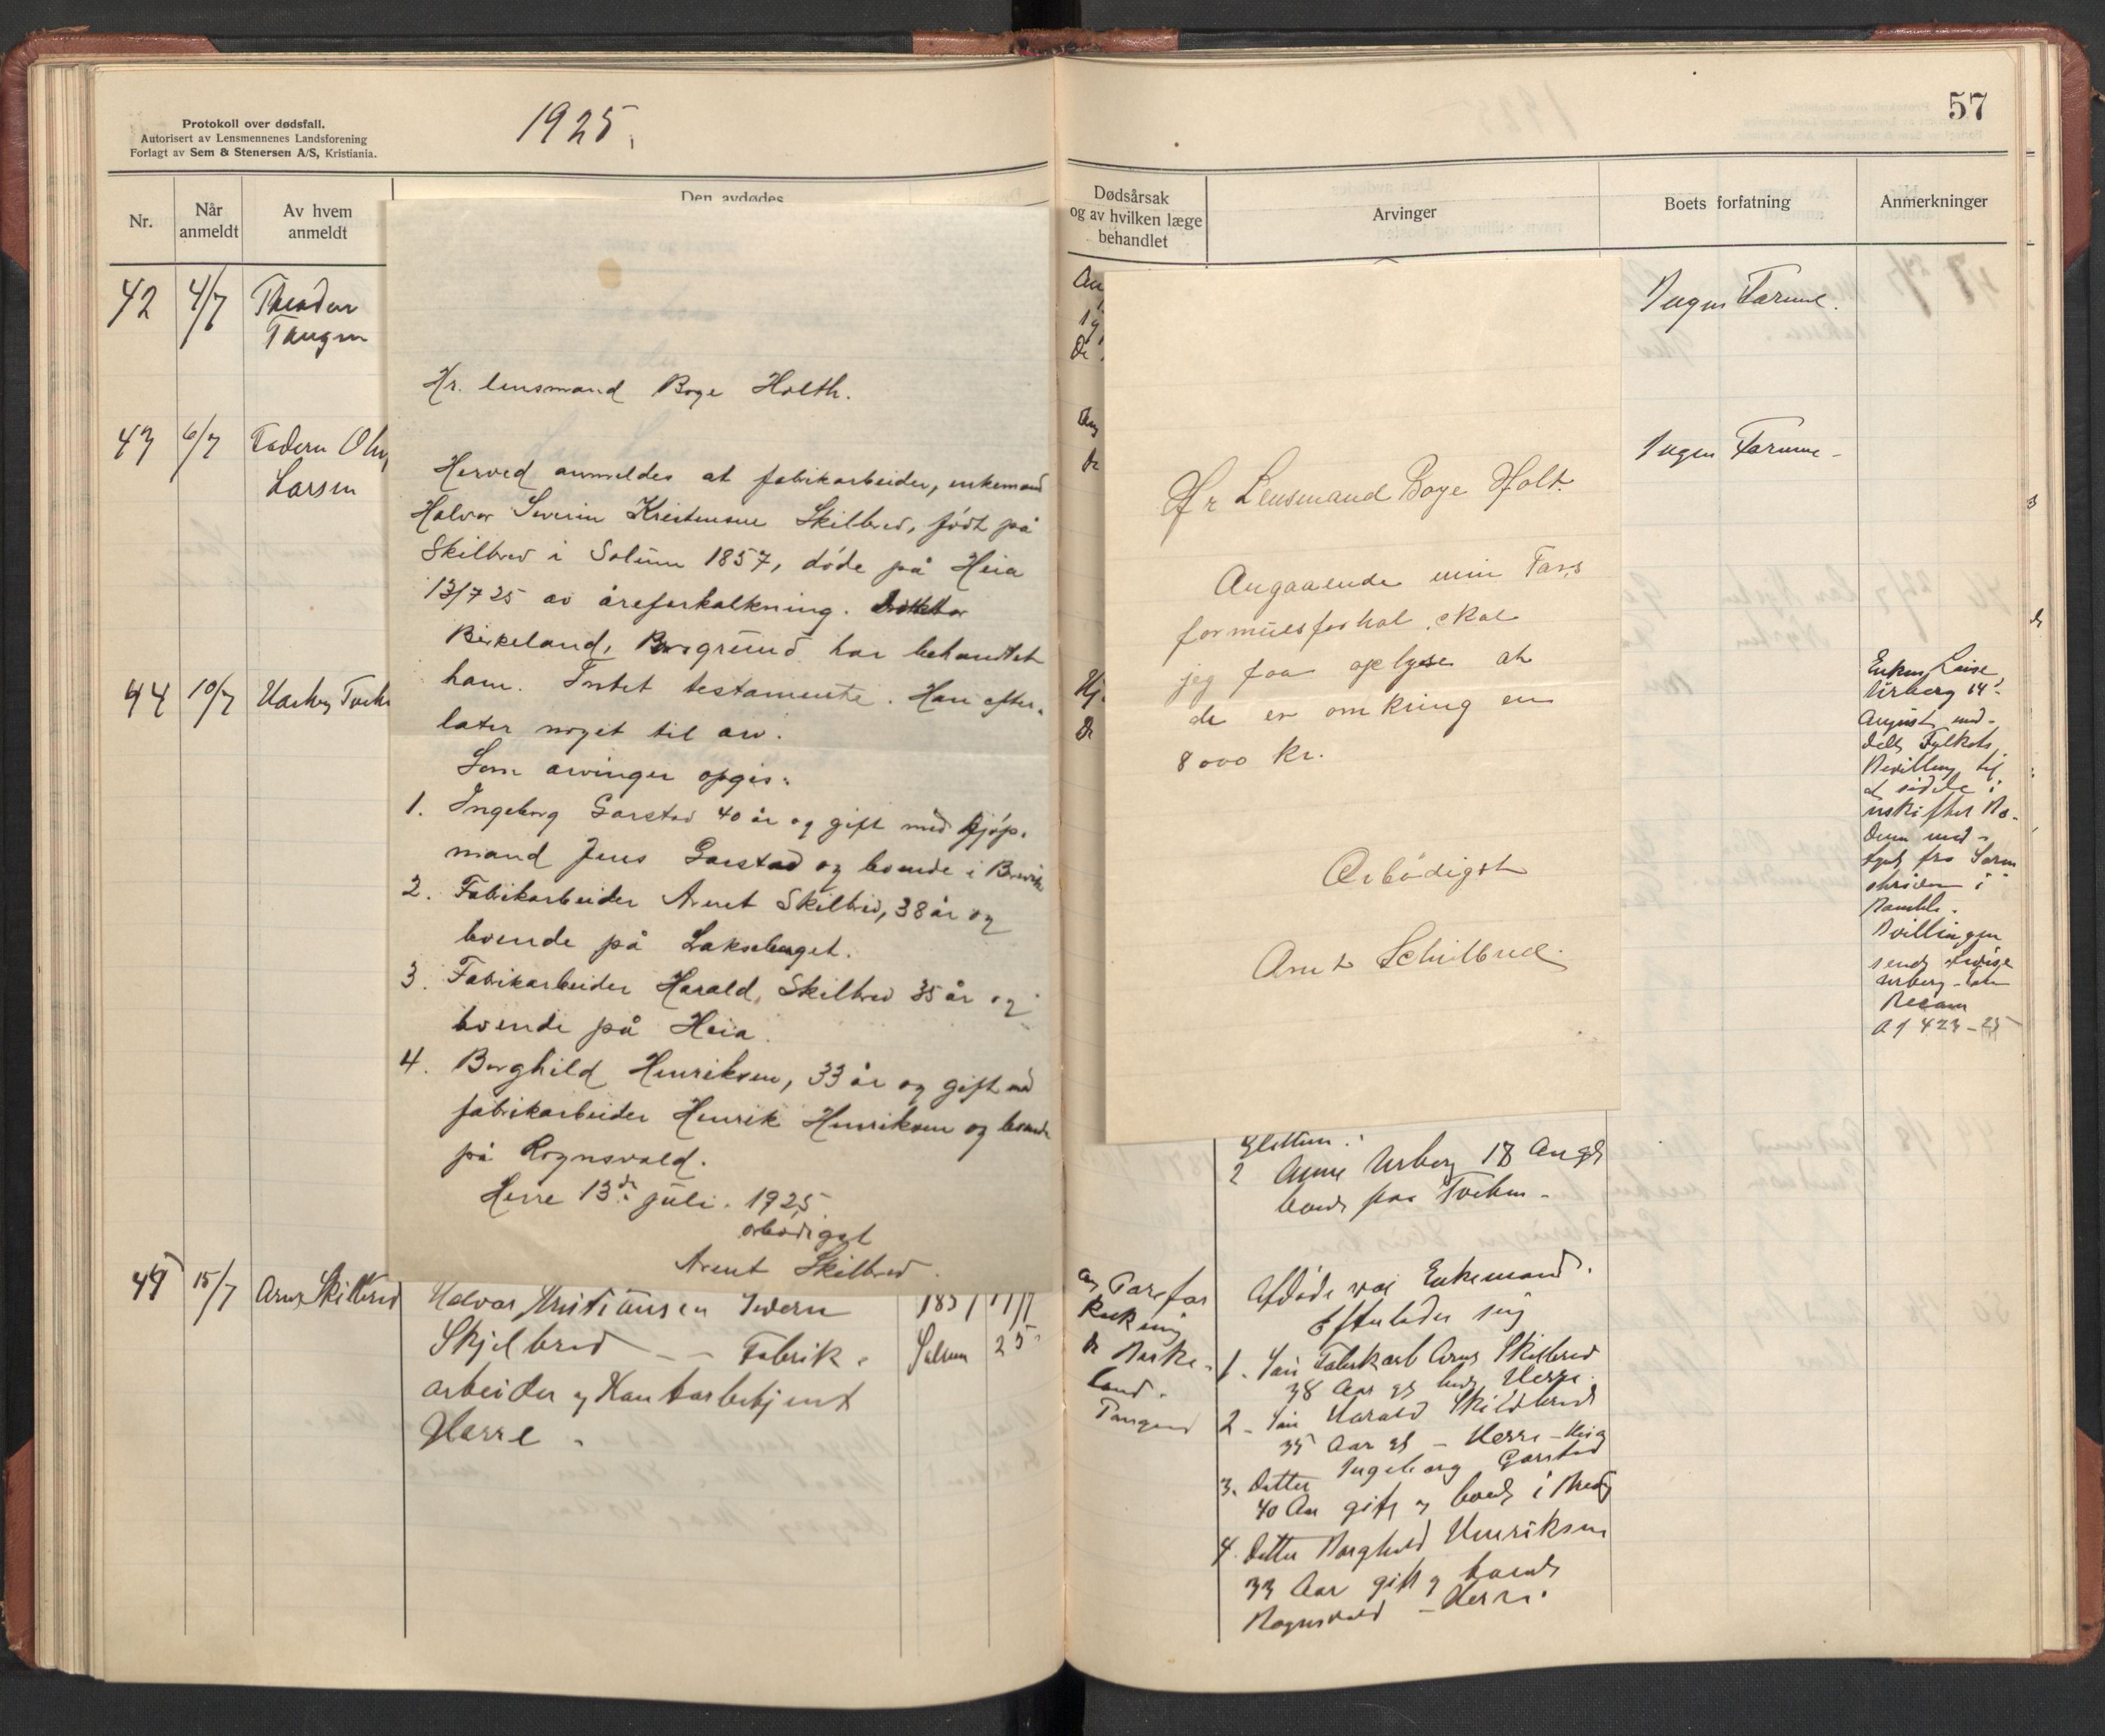 Protokoll over dødsfall.
Autorisert av Lensmennenes Landsforening
Forlagt av Sem & Stenersen A/S, Kristiania.
1925.
Nr.
Når anmeldt
Av hvem anmeldt
Den avdødes
42 4/7 Theodor
Tangen
43 6/7 Ole
Larsen
44 10/7
45 15/7 Skilbred
Hr. lensmand Boye Holth.
Herved anmeldes at fabrikarbeider, enkemand
Halvor Severin Kristensen Skilbred, født på
Skilbred i Solum 1857, døde på Heia
13/7 25 av åreforkalkning. Doktor
Birkeland, Porsgrund har behandlet
ham. Intet testamente. Han efter-
later noget til arv.
Som arvinger opgis:
1. Ingeborg Garstad 40 år og gift med kjøp-
mand Jens Garstad og boende i Brevik
2. Fabrikarbeider Arent Skilbred, 38 år og
boende på Lakseberget.
3. Fabrikarbeider Harald Skilbred 35 år og
boende på Heia.
4. Borghild Henriksen, 33 år og gift med
fabrikarbeider Henrik Henriksen og boende
på Rognsvald.
Herre 13de juli. 1925
ærbødigst
Arent Skilbred.
Halvor Kristiansen Severin
Skjelbred - - Fabrik-
arbeider og
Herre.
1857
Solum
25
57
Dødsårsak
og av hvilken læge
behandlet
Arvinger
Boets forfatning
Anmerkninger
Ingen Formue.
Ingen Formue -
Hr Lensmand Boye Holt.
Angaaende min Fars
formuesforhol. skal
jeg faa oplyse at
de er omkring en
8000 kr.
Ærbødigst
Arnt Schilbred.
Enken Louise
Urberg 14de
August med-
delt Fylkets
Bevilling til
at sidde i
uskiftet Bo.
Denne med-
fra Soren-
skriveren i
Bamble.
Bevillingen
sendt Lovise
Urberg
A J 423-25
2 Anne Urberg 18 Aug
boende paa
Aarefor
kalkning
Dr Birke-
land.
Afdøde var Enkemand.
Efterlader sig
1. Søn Fabrikarb Arnt Skilbred
38 Aar gl Herre.
2 - Søn Harald Skildbred
35 Aar gl - Herre - Heia
3. Datter Ingeborg Garstad
40 Aar gift og boende i Brevig
4. Datter Borghild Henriksen
33 Aar gift og boende
Rognsvald - Herre.